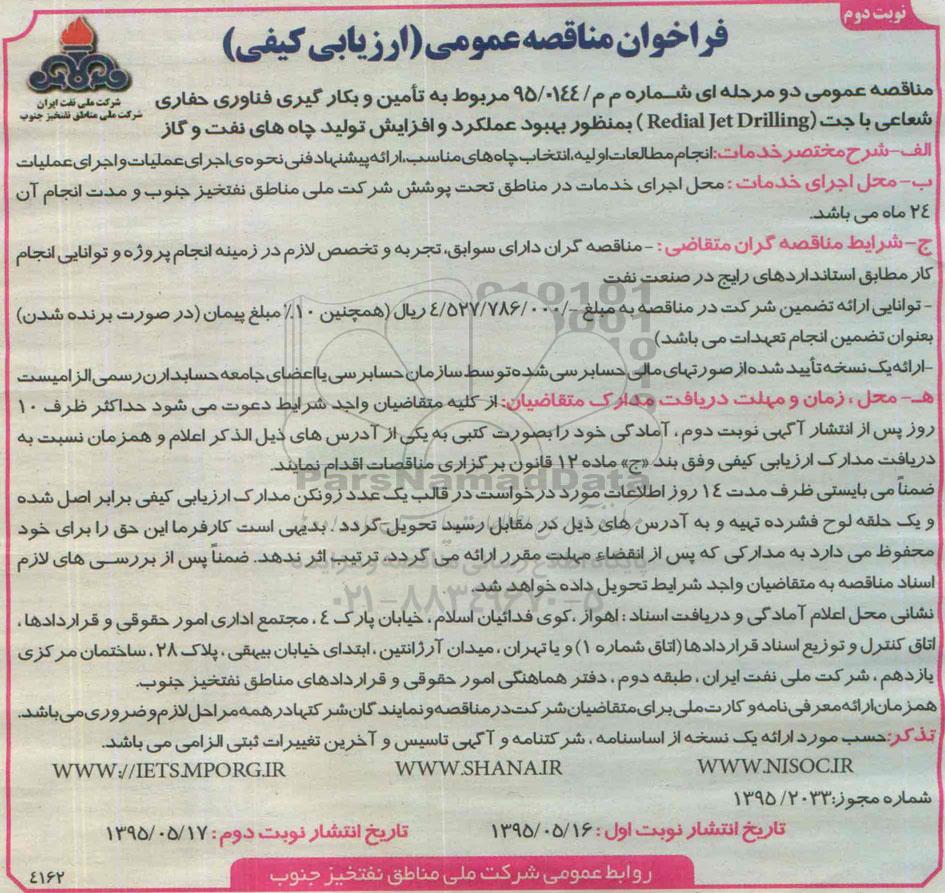 نوبت دوم
فراخوان مناقصه عمومی (ارزیابی کیفی)
شرکت ملی نفت ایران
شرکت ملی مناطق نفتخیز جنوب
مناقصه عمومی دو مرحله ای شماره م م/ ۹۵/۰۱۴۴ مربوط به تأمین و بکار گیری فناوری حفاری
شعاعی با جت (Redial Jet Drilling) بمنظور بهبود عملکرد و افزایش تولید چاه های نفت و گاز
الف-شرح مختصر خدمات: انجام مطالعات اولیه، انتخاب چاه های مناسب، ارائه پیشنهاد فنی نحوه ی اجرای عملیات و اجرای عملیات
ب-محل اجرای خدمات: محل اجرای خدمات در مناطق تحت پوشش شرکت ملی مناطق نفتخیز جنوب و مدت انجام آن
۲۴ ماه می باشد.
ج-شرایط مناقصه گران متقاضی: -مناقصه گران دارای سوابق، تجربه و تخصص لازم در زمینه انجام پروژه و توانایی انجام
کار مطابق استانداردهای رایج در صنعت نفت
- توانایی ارائه تضمین شرکت در مناقصه به مبلغ -/۴/۵۲۷/۷۸۶/۰۰۰ ریال (همچنین ۱۰٪ مبلغ پیمان (در صورت برنده شدن)
بعنوان تضمین انجام تعهدات می باشد)
-ارائه یک نسخه تأیید شده از صورتهای مالی حسابرسی شده توسط سازمان حسابرسی یا اعضای جامعه حسابدارن رسمی الزامیست
هـ- محل، زمان و مهلت دریافت مدارک متقاضیان: از کلیه متقاضیان واجد شرایط دعوت می شود حداکثر ظرف ۱۰
روز پس از انتشار آگهی نوبت دوم، آمادگی خود را بصورت کتبی به یکی از آدرس های ذیل الذکر اعلام و همزمان نسبت به
دریافت مدارک ارزیابی کیفی وفق بند «ج» ماده ۱۲ قانون برگزاری مناقصات اقدام نمایند.
ضمناً می بایستی ظرف مدت ۱۴ روز اطلاعات مورد درخواست در قالب یک عدد زونکن مدارک ارزیابی کیفی برابر اصل شده
و یک حلقه لوح فشرده تهیه و به آدرس های ذیل در مقابل رسید تحویل گردد. بدیهی است کارفرما این حق را برای خود
محفوظ می دارد به مدارکی که پس از انقضاء مهلت مقرر ارائه می گردد، ترتیب اثر ندهد. ضمناً پس از بررسی های لازم
اسناد مناقصه به متقاضیان واجد شرایط تحویل داده خواهد شد.
نشانی محل اعلام آمادگی و دریافت اسناد: اهواز، کوی فدائیان اسلام، خیابان پارک ۴، مجتمع اداری امور حقوقی و قراردادها،
اتاق کنترل و توزیع اسناد قراردادها (اتاق شماره ۱) و یا تهران، میدان آرژانتین، ابتدای خیابان بیهقی، پلاک ۲۸، ساختمان مرکزی
یازدهم، شرکت ملی نفت ایران، طبقه دوم، دفتر هماهنگی امور حقوقی و قراردادهای مناطق نفتخیز جنوب.
همزمان ارائه معرفی نامه و کارت ملی برای متقاضیان شرکت در مناقصه و نمایندگان شرکتها در همه مراحل لازم و ضروری می باشد.
تذکر: حسب مورد ارائه یک نسخه از اساسنامه، شرکتنامه و آگهی تاسیس و آخرین تغییرات ثبتی الزامی می باشد.
WWW.NISOC.IR WWW.SHANA.IR WWW://IETS.MPORG.IR
شماره مجوز: ۱۳۹۵/۲۰۳۳
تاریخ انتشار نوبت اول: ۱۳۹۵/۰۵/۱۶ تاریخ انتشار نوبت دوم: ۱۳۹۵/۰۵/۱۷
روابط عمومی شرکت ملی مناطق نفتخیز جنوب
۴۱۶۲
ParsNamadData
۰۲۱-۸۸۳۴۹۶۷۰-۵